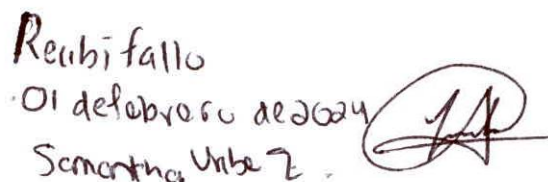 Recibi fallo
01 de febrero de 2024
Samantha Uribe Z.